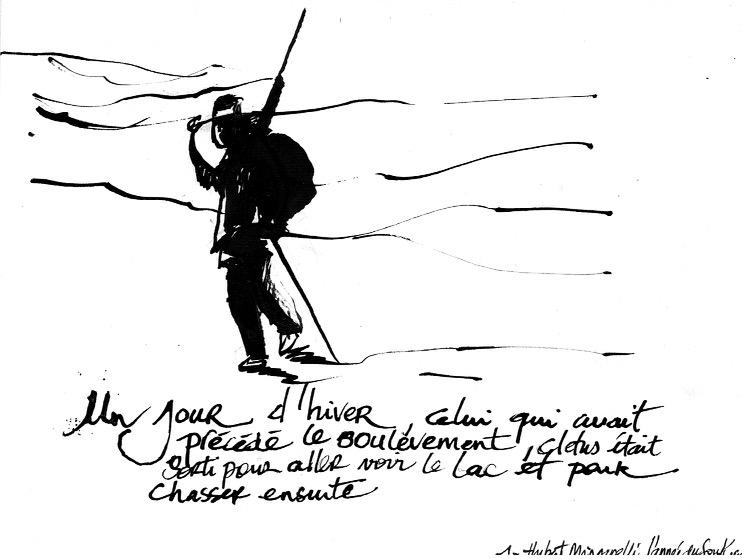 Un jour d'hiver, celui qui avait
précédé le soulèvement, Cletus était
sorti pour aller voir le lac et pour
chasser ensuite
1- Hubert Mingarelli, l'année du Soul